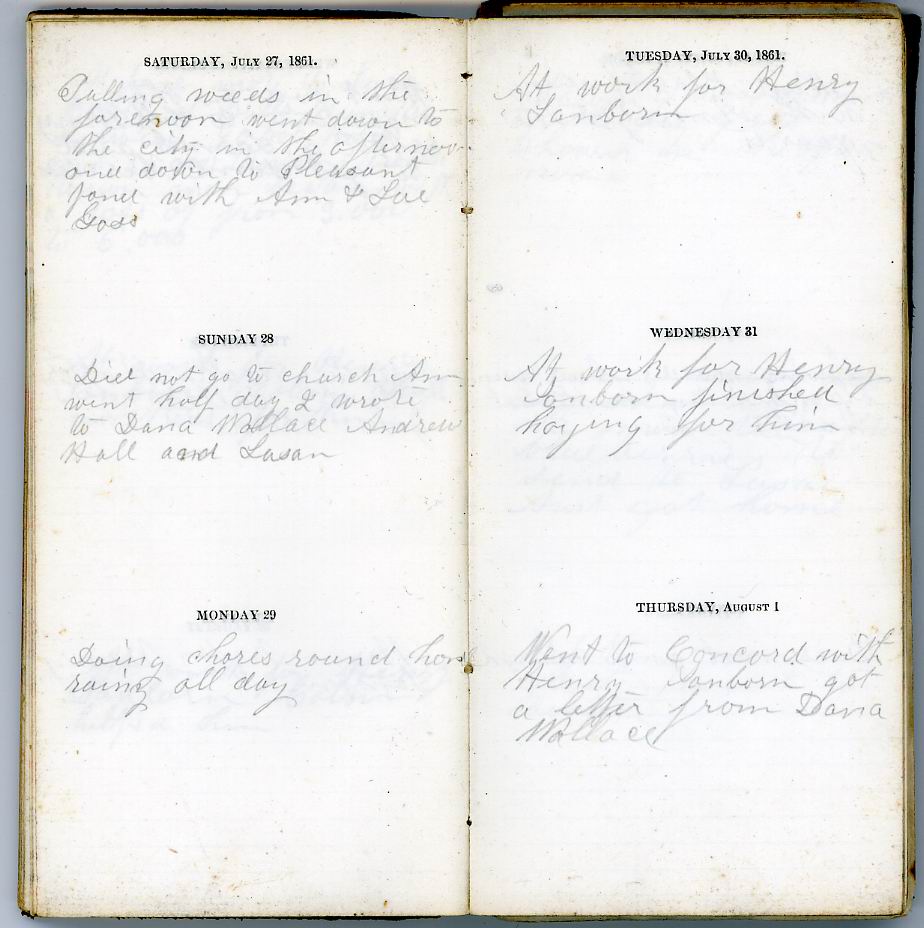 SATURDAY, JULY 27, 1861.
Pulling weeds in the
forenoon went down to
the city in the afternoon
and down to Pleasant
pond with Ann & Sue
Goss
SUNDAY 28
Did not go to church Ann
went half day I wrote
to Dana Wallace Andrew
Hall and Susan
MONDAY 29
Doing chores round home
rainy all day
TUESDAY, JULY 30, 1861.
At work for Henry
Sanborn
WEDNESDAY 31
At work for Henry
Sanborn finished
haying for him
THURSDAY, AUGUST 1
Went to Concord with
Henry Sanborn got
a letter from Dana
Wallace